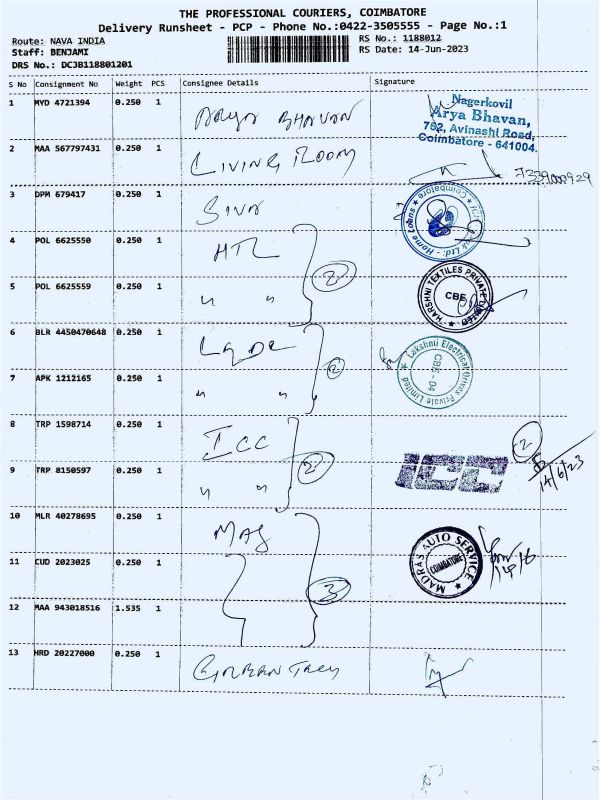 THE PROFESSIONAL COURIERS, COIMBATORE
Delivery Runsheet - PCP - Phone No.:0422-3505555 - Page No.:1
Route: NAVA INDIA
RS No.: 1188012
Staff: BENJAMI
RS Date: 14-Jun-2023
DRS No.: DCJB118801201
S No Consignment No Weight PCS Consignee Details Signature
1 MYD 4721394 0.250 1 Arya BHAVAN
Nagerkovil
Arya Bhavan,
752, Avinashi Road,
Coimbatore - 641004.
2 MAA 567797431 0.250 1 LIVING ROOM
3 DPM 679417 0.250 1 SIVA
Home Loans * Coimbatore *
4 POL 6625550 0.250 1 HTL 2
5 POL 6625559 0.250 1 " "
HARSHNI TEXTILES PRIVATE LIMITED
CBE
6 BLR 4450470648 0.250 1 2
Lakshmi Electrical Drives Private Limited
CBE - 04
7 APK 1212165 0.250 1 " "
8 TRP 1598714 0.250 1 ICC 2
2
9 TRP 8150597 0.250 1 " "
ICC
14/6/23
10 MLR 40278695 0.250 1 MAS
11 CUD 2023025 0.250 1 3
MADRAS AUTO SERVICE
COIMBATORE
14/6
12 MAA 943018516 1.535 1
13 HRD 20227000 0.250 1